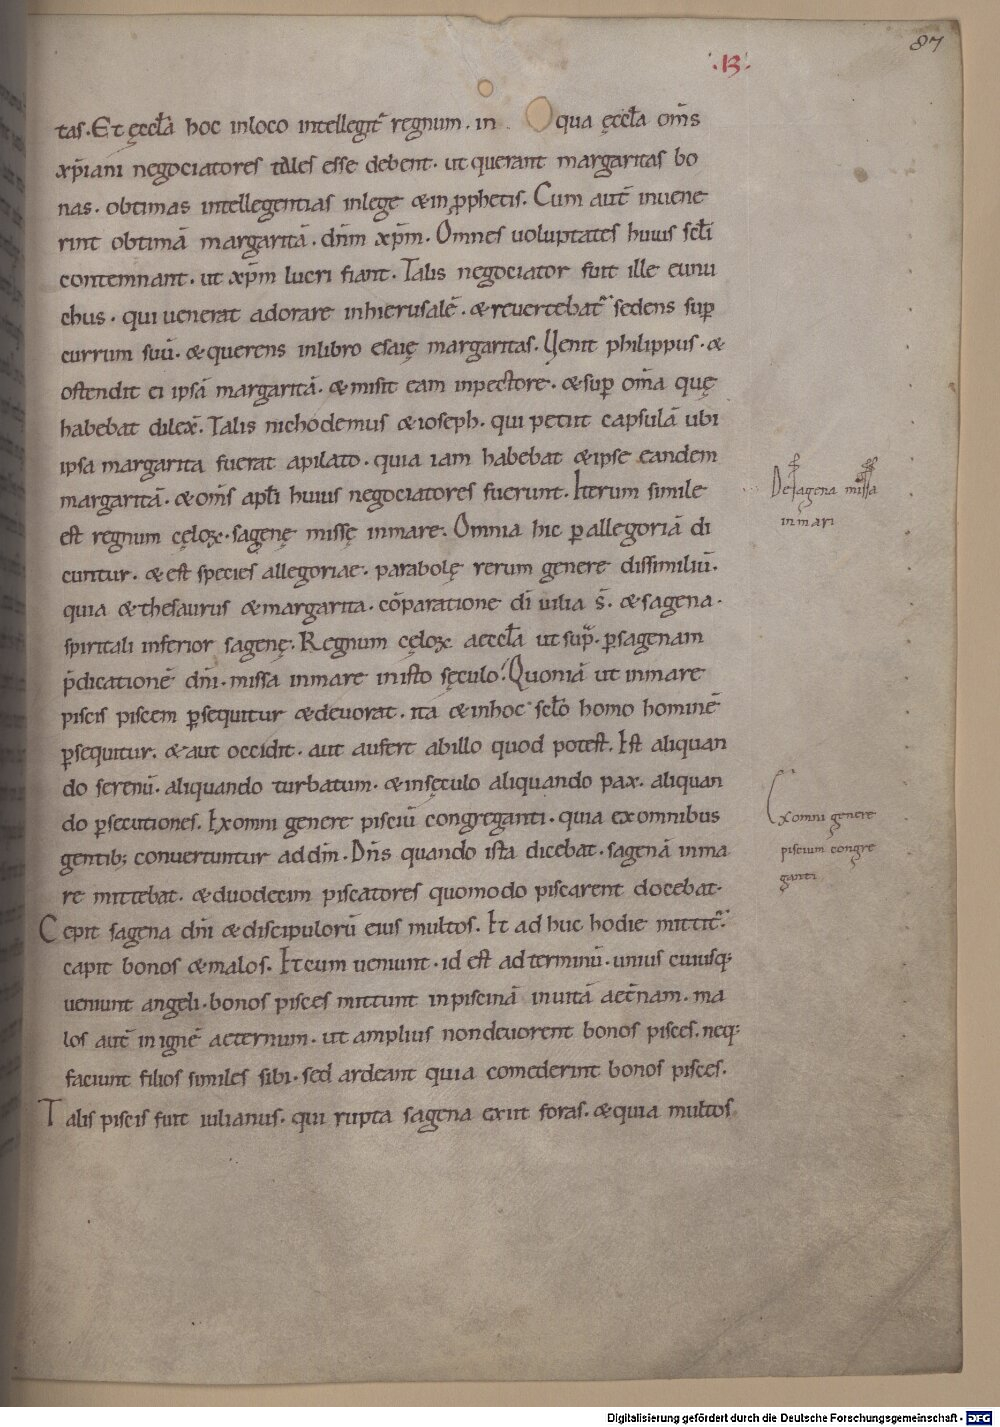 87
.B.
tas. Et ęccła hoc inloco intellegit᷑ regnum. in qua ęccła om̄s
xp̄iani negociatores tales esse debent. ut querant margaritas bo
nas. obtimas intellegentias inlege & in ꝓphetis. Cum aut̄ inuene
rint obtimā margaritā. dn̄m xp̄m. Omnes uoluptates huius sc̄li
contemnant. ut xp̄m lucri fiant. Talis negociator fuit ille eunu
chus. qui uenerat adorare inhierusalē. & reuertebat᷑ sedens suꝑ
currum suū. & querens inlibro esaię margaritas. Uenit philippus. &
ostendit ei ipsā margaritā. & misit eam inpectore. & suꝑ om̄a quę
habebat dilex̄. Talis nichodemus & ioseph. qui petiit capsulā ubi
ipsa margarita fuerat apilato. quia iam habebat & ipse eandem
margaritā. & om̄s apłi huius negociatores fuerunt. Iterum simile
est regnum cęloꝝ. sagenę missę inmare. Omnia hic ꝑ allegoriā di
cuntur. & est species allegoriae. parabolę rerum genere dissimiliū.
quia & thesaurus & margarita. cōparatione dī uilia s̄. & sagena.
spiritali inferior sagenę. Regnum cęloꝝ aeccła ut sup᷑. ꝑsagenam
p̄dicationē dn̄i. missa inmare in isto sęculo. Quoniā ut inmare
piscis piscem ꝑsequitur & deuorat. ita & inhoc sc̄lo homo hominē
ꝑsequitur. & aut occidit. aut aufert abillo quod potest. Est aliquan
do serenū. aliquando turbatum. & insęculo aliquando pax. aliquan
do ꝑsecutiones. Exomni genere pisciū congreganti. quia exomnibus
gentib; conuertuntur ad dn̄m. Dn̄s quando ista dicebat. sagenā inma
re mittebat. & duodecim piscatores quomodo piscarent docebat.
Cepit sagena dn̄i & discipulorū eius multos. Et ad huc hodie mittit᷑.
capit bonos & malos. Et cum ueniunt. id est ad terminū. unius cuiusq;
ueniunt angeli. bonos pisces mittunt inpiscinā inuitā aet̄nam. ma
los aut̄ in ignē aeternum. ut amplius nondeuorent bonos pisces. neq;
faciunt filios similes sibi. sed ardeant quia comederint bonos pisces.
Talis piscis fuit iulianus. qui rupta sagena exiit foras. & quia multos
De sagena missa
in mari
Exomni genere
piscium congre
ganti
Digitalisierung gefördert durch die Deutsche Forschungsgemeinschaft - DFG